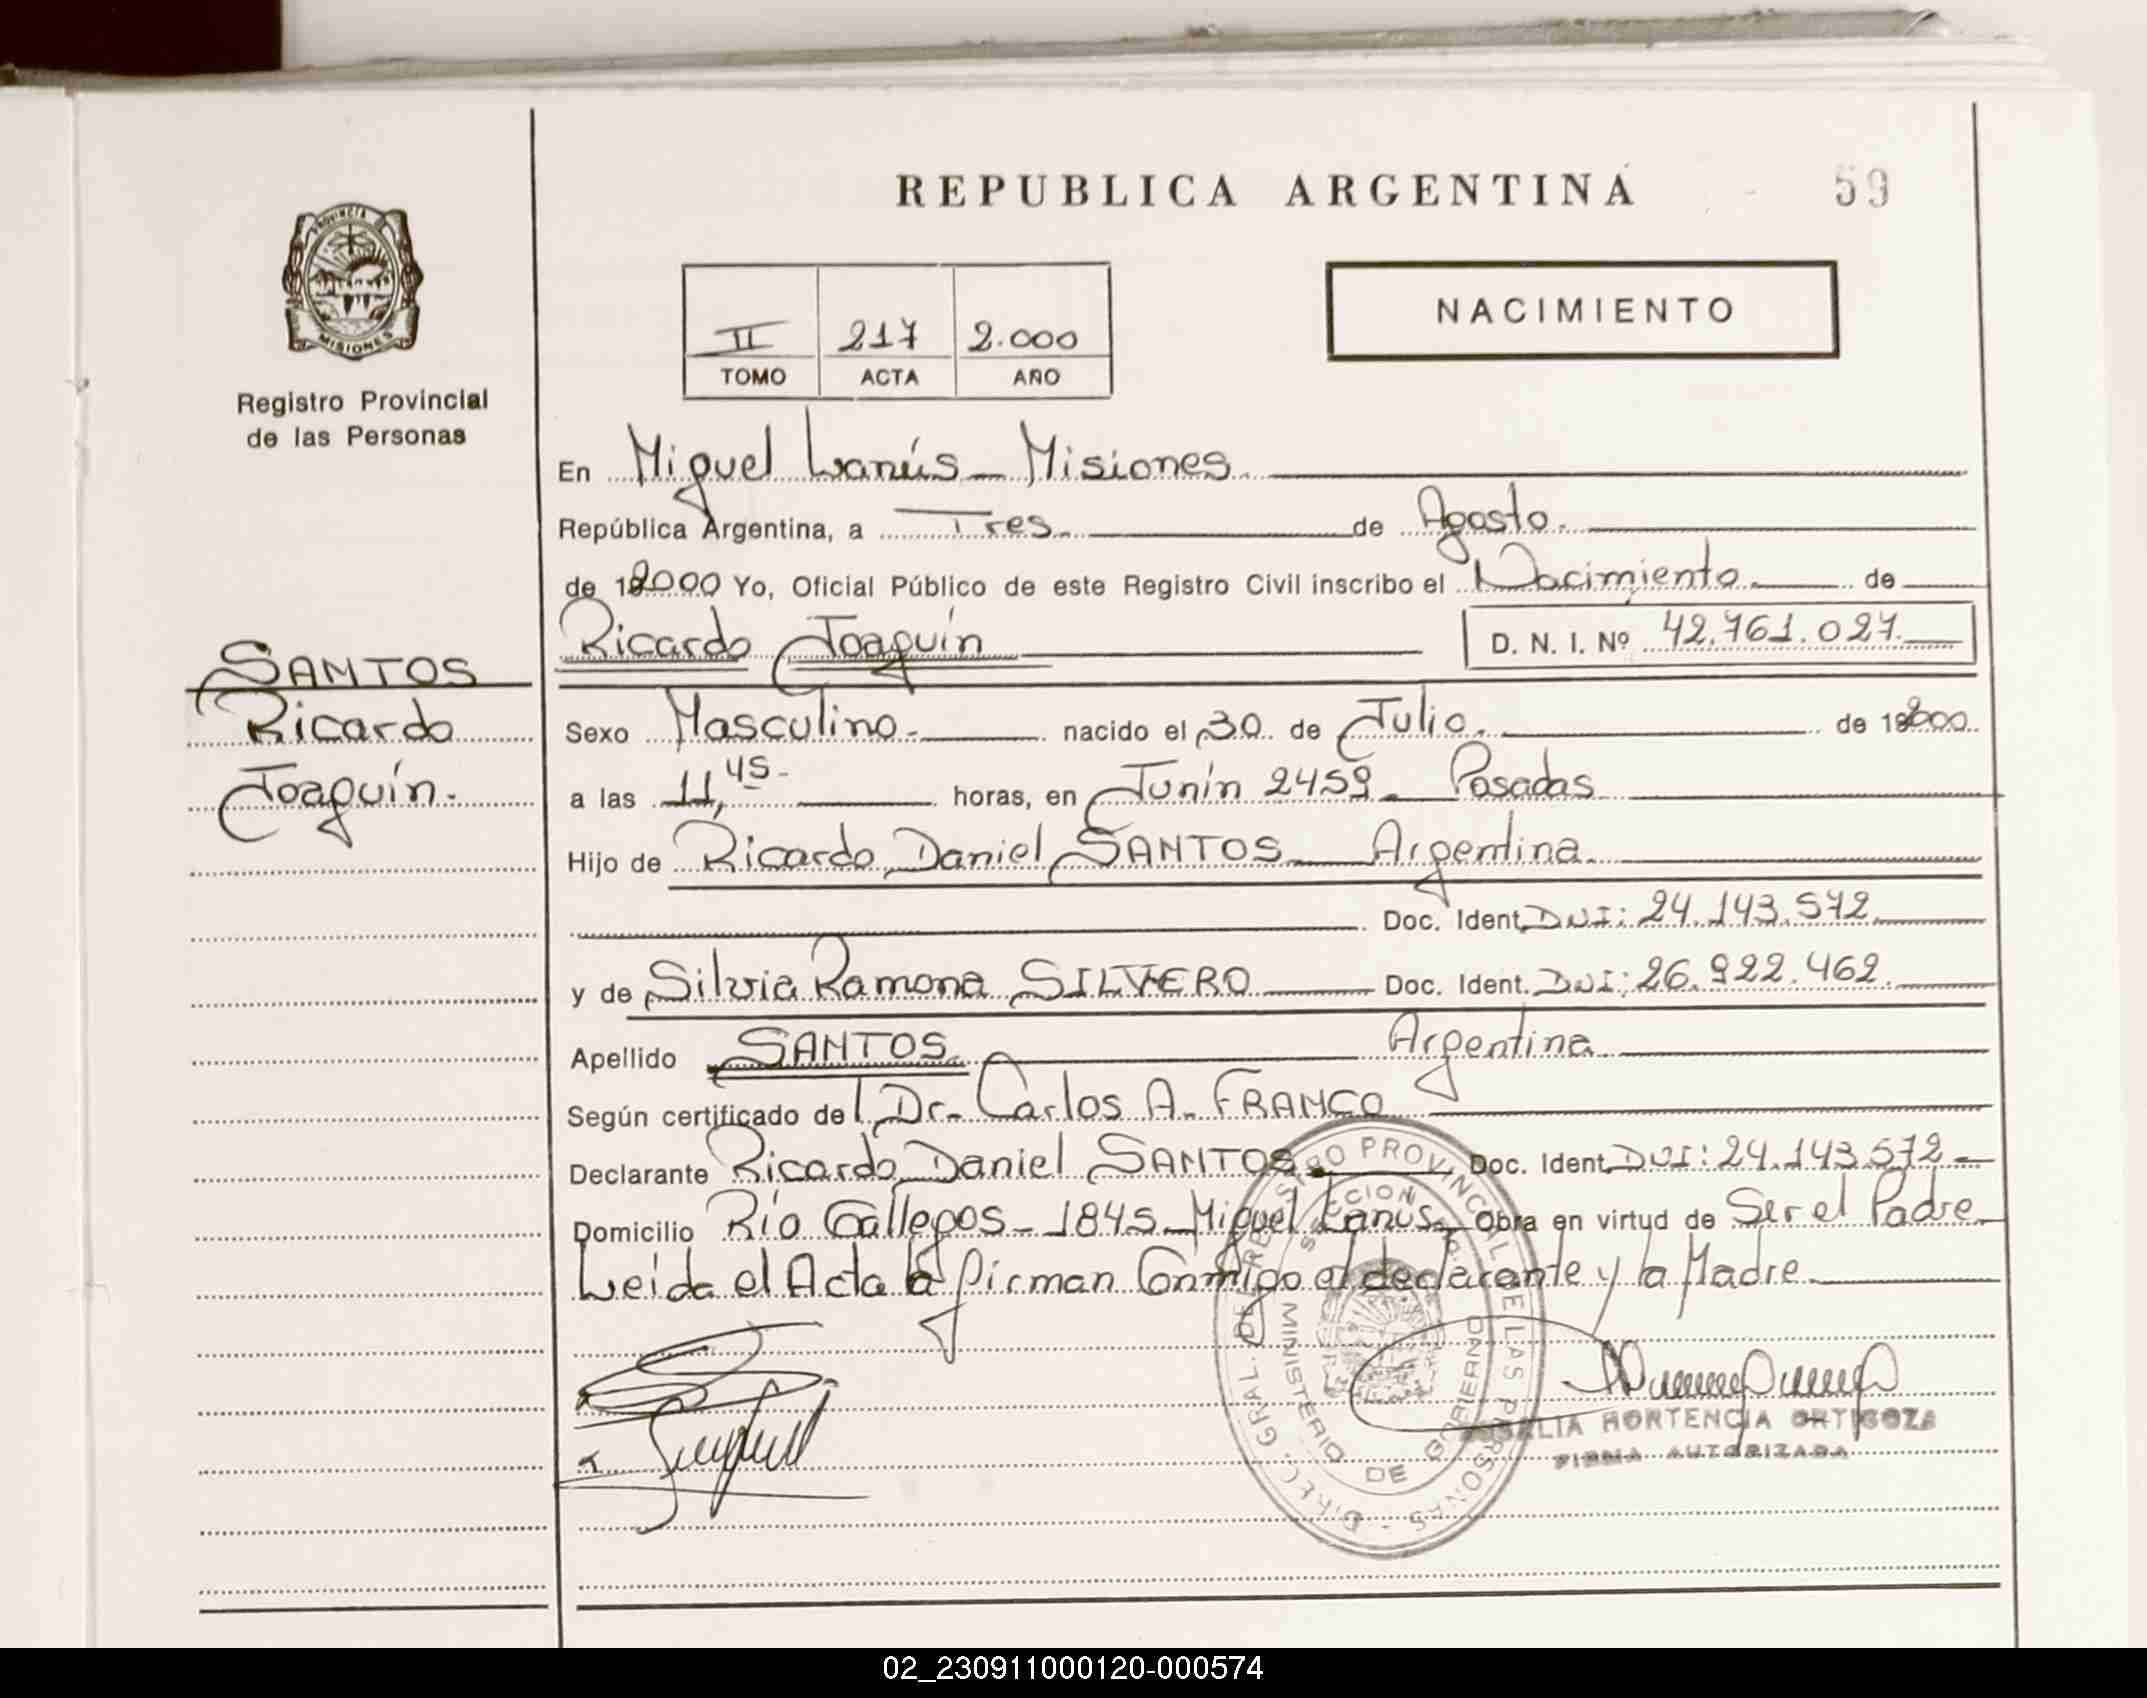 REPUBLICA ARGENTINA
59
PROVINCIA
MISIONES
Registro Provincial
de las Personas
II 217 2.000
TOMO ACTA AÑO
NACIMIENTO
En Miguel Lanús - Misiones
República Argentina, a Tres de Agosto
de 2000 Yo, Oficial Público de este Registro Civil inscribo el Nacimiento de
Ricardo Joaquín D. N. I. Nº 42.761.027.
SANTOS
Ricardo
Joaquín.
Sexo Masculino. nacido el 30 de Julio de 2000
a las 11,45 horas, en Junín 2459 - Posadas
Hijo de Ricardo Daniel SANTOS Argentina
Doc. Ident. DNI: 24.143.572
y de Silvia Ramona SILVERO Doc. Ident. DNI: 26.922.462.
Apellido SANTOS Argentina
Según certificado del Dr. Carlos A. FRANCO
Declarante Ricardo Daniel SANTOS Doc. Ident. DNI: 24.143.572
Domicilio Río Gallegos - 1845 - Miguel Lanús - Obra en virtud de Ser el Padre
Leida el Acta la firman Conmigo el declarante y la Madre
DIREC. GRAL. DEL REGISTRO PROVINCIAL DE LAS PERSONAS
MINISTERIO DE GOBIERNO
HORTENCIA ORTIGOZA
FIRMA AUTORIZADA
02_230911000120-000574